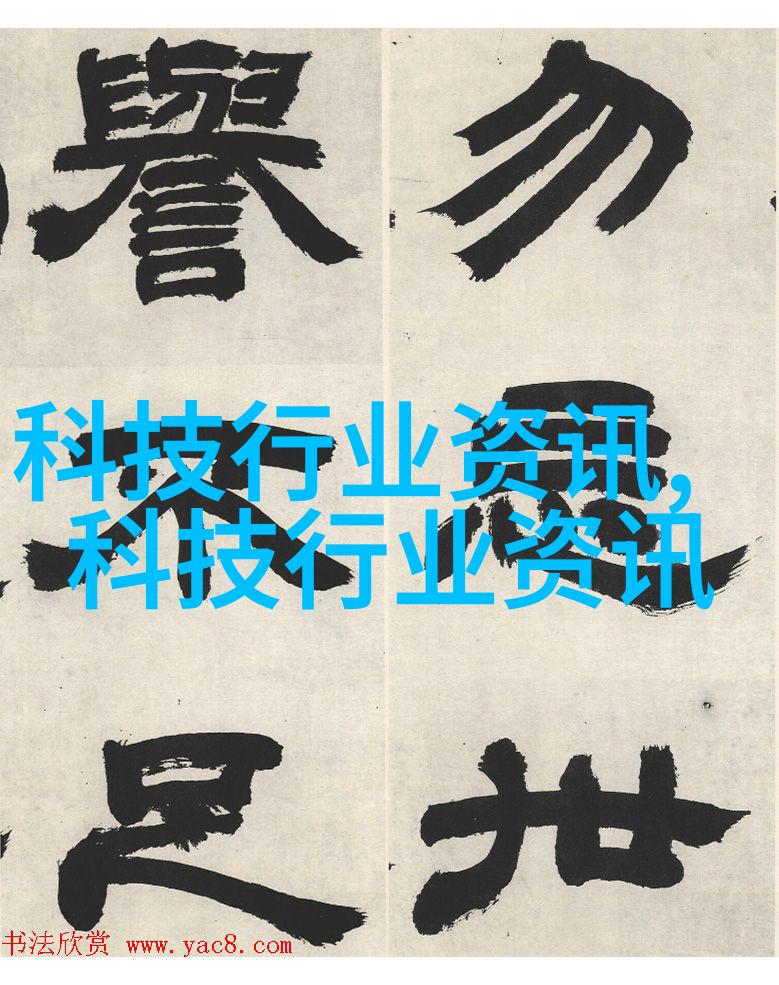 勿世
譽不足
科技行业资讯,
科技行业资讯
书法欣赏 www.yac8.com